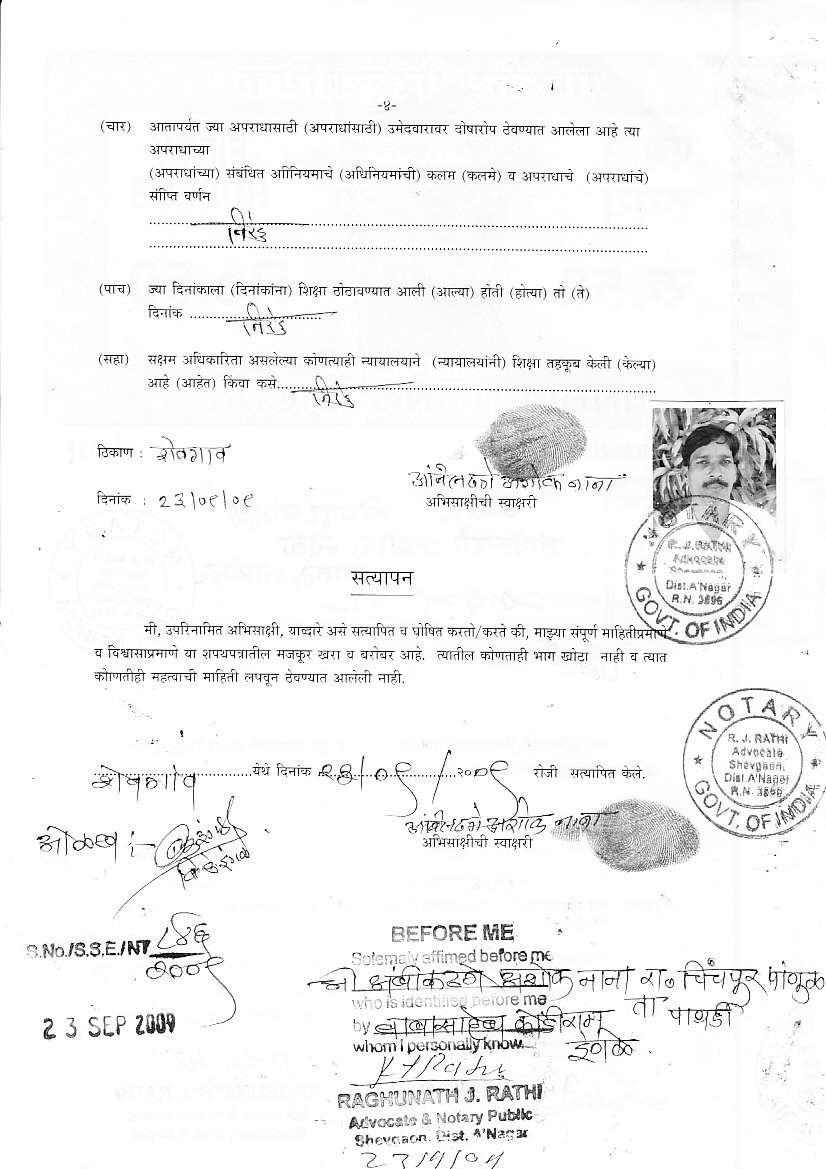 -४-
(चार) आतापर्यत ज्या अपराधासाठी (अपराधांसाठी) उमेदवारावर दोषारोप ठेवण्यात आलेला आहे त्या
अपराधाच्या
(अपराधांच्या) संबंधित अीनियमाचे (अधिनियमांची) कलम (कलमे) व अपराधाचे (अपराधांचे)
संप्ति वर्णन
निरंक
(पाच) ज्या दिनांकाला (दिनांकांना) शिक्षा ठोठावण्यात आली (आल्या) होती (होत्या) तो (ते)
दिनांक ..................... निरंक
(सहा) सक्षम अधिकारिता असलेल्या कोणत्याही न्यायालयाने (न्यायालयांनी) शिक्षा तहकूब केली (केल्या)
आहे (आहेत) किंवा कसे..... निरंक
ठिकाण : शेवगाव
दिनांक : २३/०९/०९
अशोक नाना
अभिसाक्षीची स्वाक्षरी
NOTARY
R. J. RATHI
Advocate
Dist.A'Nagar
R.N. 3696
GOVT. OF INDIA
सत्यापन
मी, उपरिनामित अभिसाक्षी, याव्दारे असे सत्यापित व घोषित करतो/करते की, माझ्या संपूर्ण माहितीप्रमाणे
व विश्वासाप्रमाणे या शपथपत्रातील मजकूर खरा व बरोबर आहे. त्यातील कोणताही भाग खोटा नाही व त्यात
कोणतीही महत्वाची माहिती लपवून ठेवण्यात आलेली नाही.
NOTARY
R. J. RATHI
Advocate
Shevgaon,
Dist.A'Nagar
R.N. 3696
GOVT. OF INDIA
शेवगांव ........येथे दिनांक २३/०९/२००९ रोजी सत्यापित केले.
अशोक नाना
अभिसाक्षीची स्वाक्षरी
ओळख :-
S.No./S.S.E./NT
२००९
23 SEP 2009
BEFORE ME
Solemaly affimed before me
श्री अशोक नाना रा. पिंपुर
who is identified before me
ता पाथर्डी
by बाबासाहेब कोंडीराम
whom i personally know.
इंगळे
RAGHUNATH J. RATHI
Advocate & Notary Public
Shevgaon. Dist. A'Nagar
23/9/09